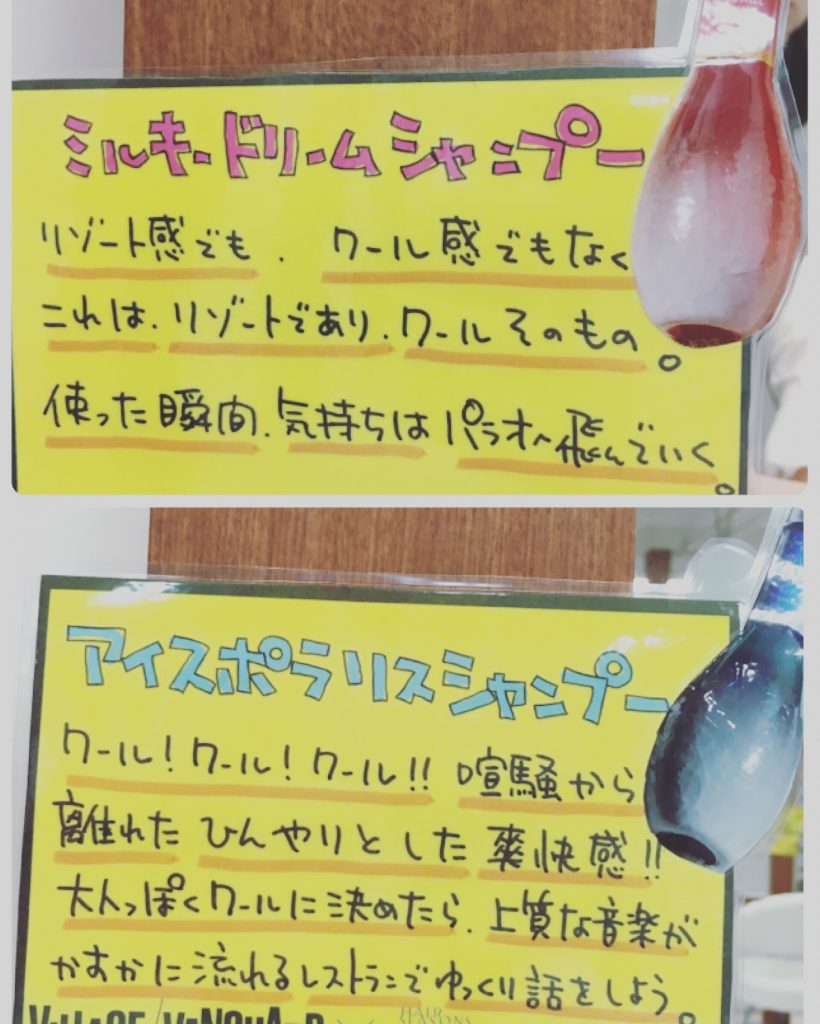 ミルキードリームシャンプー
リゾート感でも、クール感でもなく
これは、リゾートであり、クールそのもの。
使った瞬間、気持ちはパラオへ飛んでいく。
アイスポラリスシャンプー
クール!クール!クール!! 喧騒から
離れたひんやりとした爽快感!!
大人っぽくクールに決めたら、上質な音楽が
かすかに流れるレストランでゆっくり話をしよう。
VILLAGE/VANGUARD
HAIR SEASONS